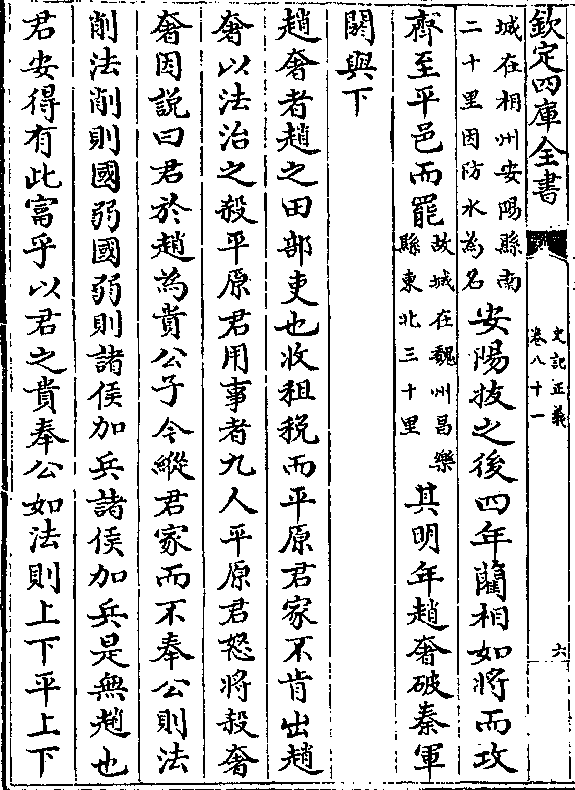 欽定四庫全書
史記正義
卷八十一
六
城在相州安陽縣南
二十里因防水為名
安陽拔之後四年藺相如將而攻
齊至平邑而罷
故城在魏州昌樂
縣東北三十里
其明年趙奢破秦軍
閼與下
趙奢者趙之田部吏也收租税而平原君家不肯出趙
奢以法治之殺平原君用事者九人平原君怒將殺奢
奢因説曰君於趙為貴公子今縱君家而不奉公則法
削法削則國弱國弱則諸侯加兵諸侯加兵是無趙也
君安得有此富乎以君之貴奉公如法則上下平上下